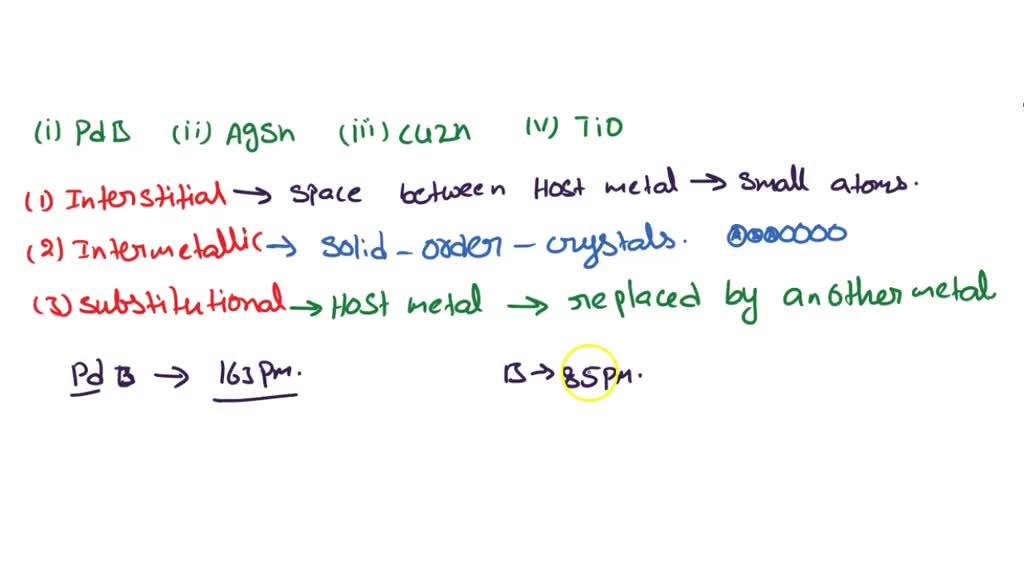 (i) PdB (ii) AgSn (iii) CuZn (V) TiO
(1) Interstitial → space between Host metal → small atoms.
(2) Intermetallic → solid - order - crystals.
(3) substitutional → Host metal → replaced by another metal
Pd B → 163 Pm. B → 85 Pm.